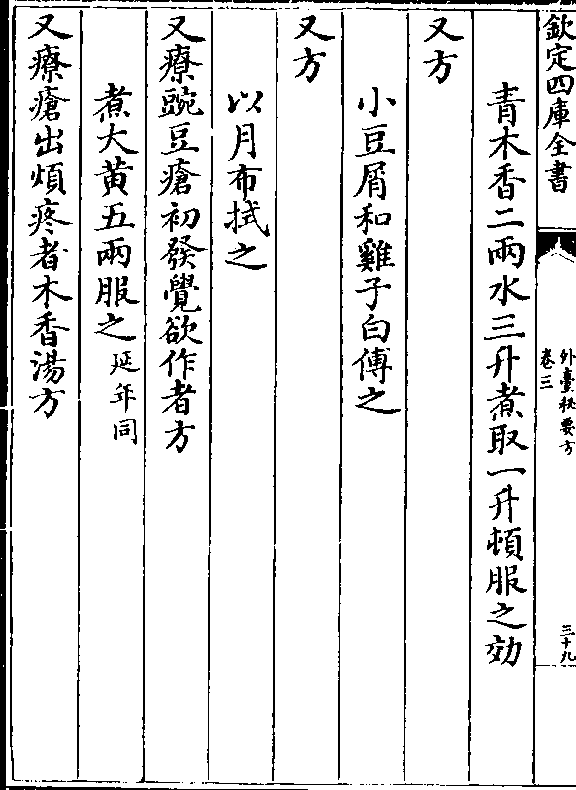 欽定四庫全書
外臺秘要方
卷三
三十九
青木香二兩水三升煮取一升頓服之効
又方
小豆屑和雞子白傅之
又方
以月布拭之
又療豌豆瘡初發覺欲作者方
煮大黄五兩服之延年同
又療瘡出煩疼者木香湯方